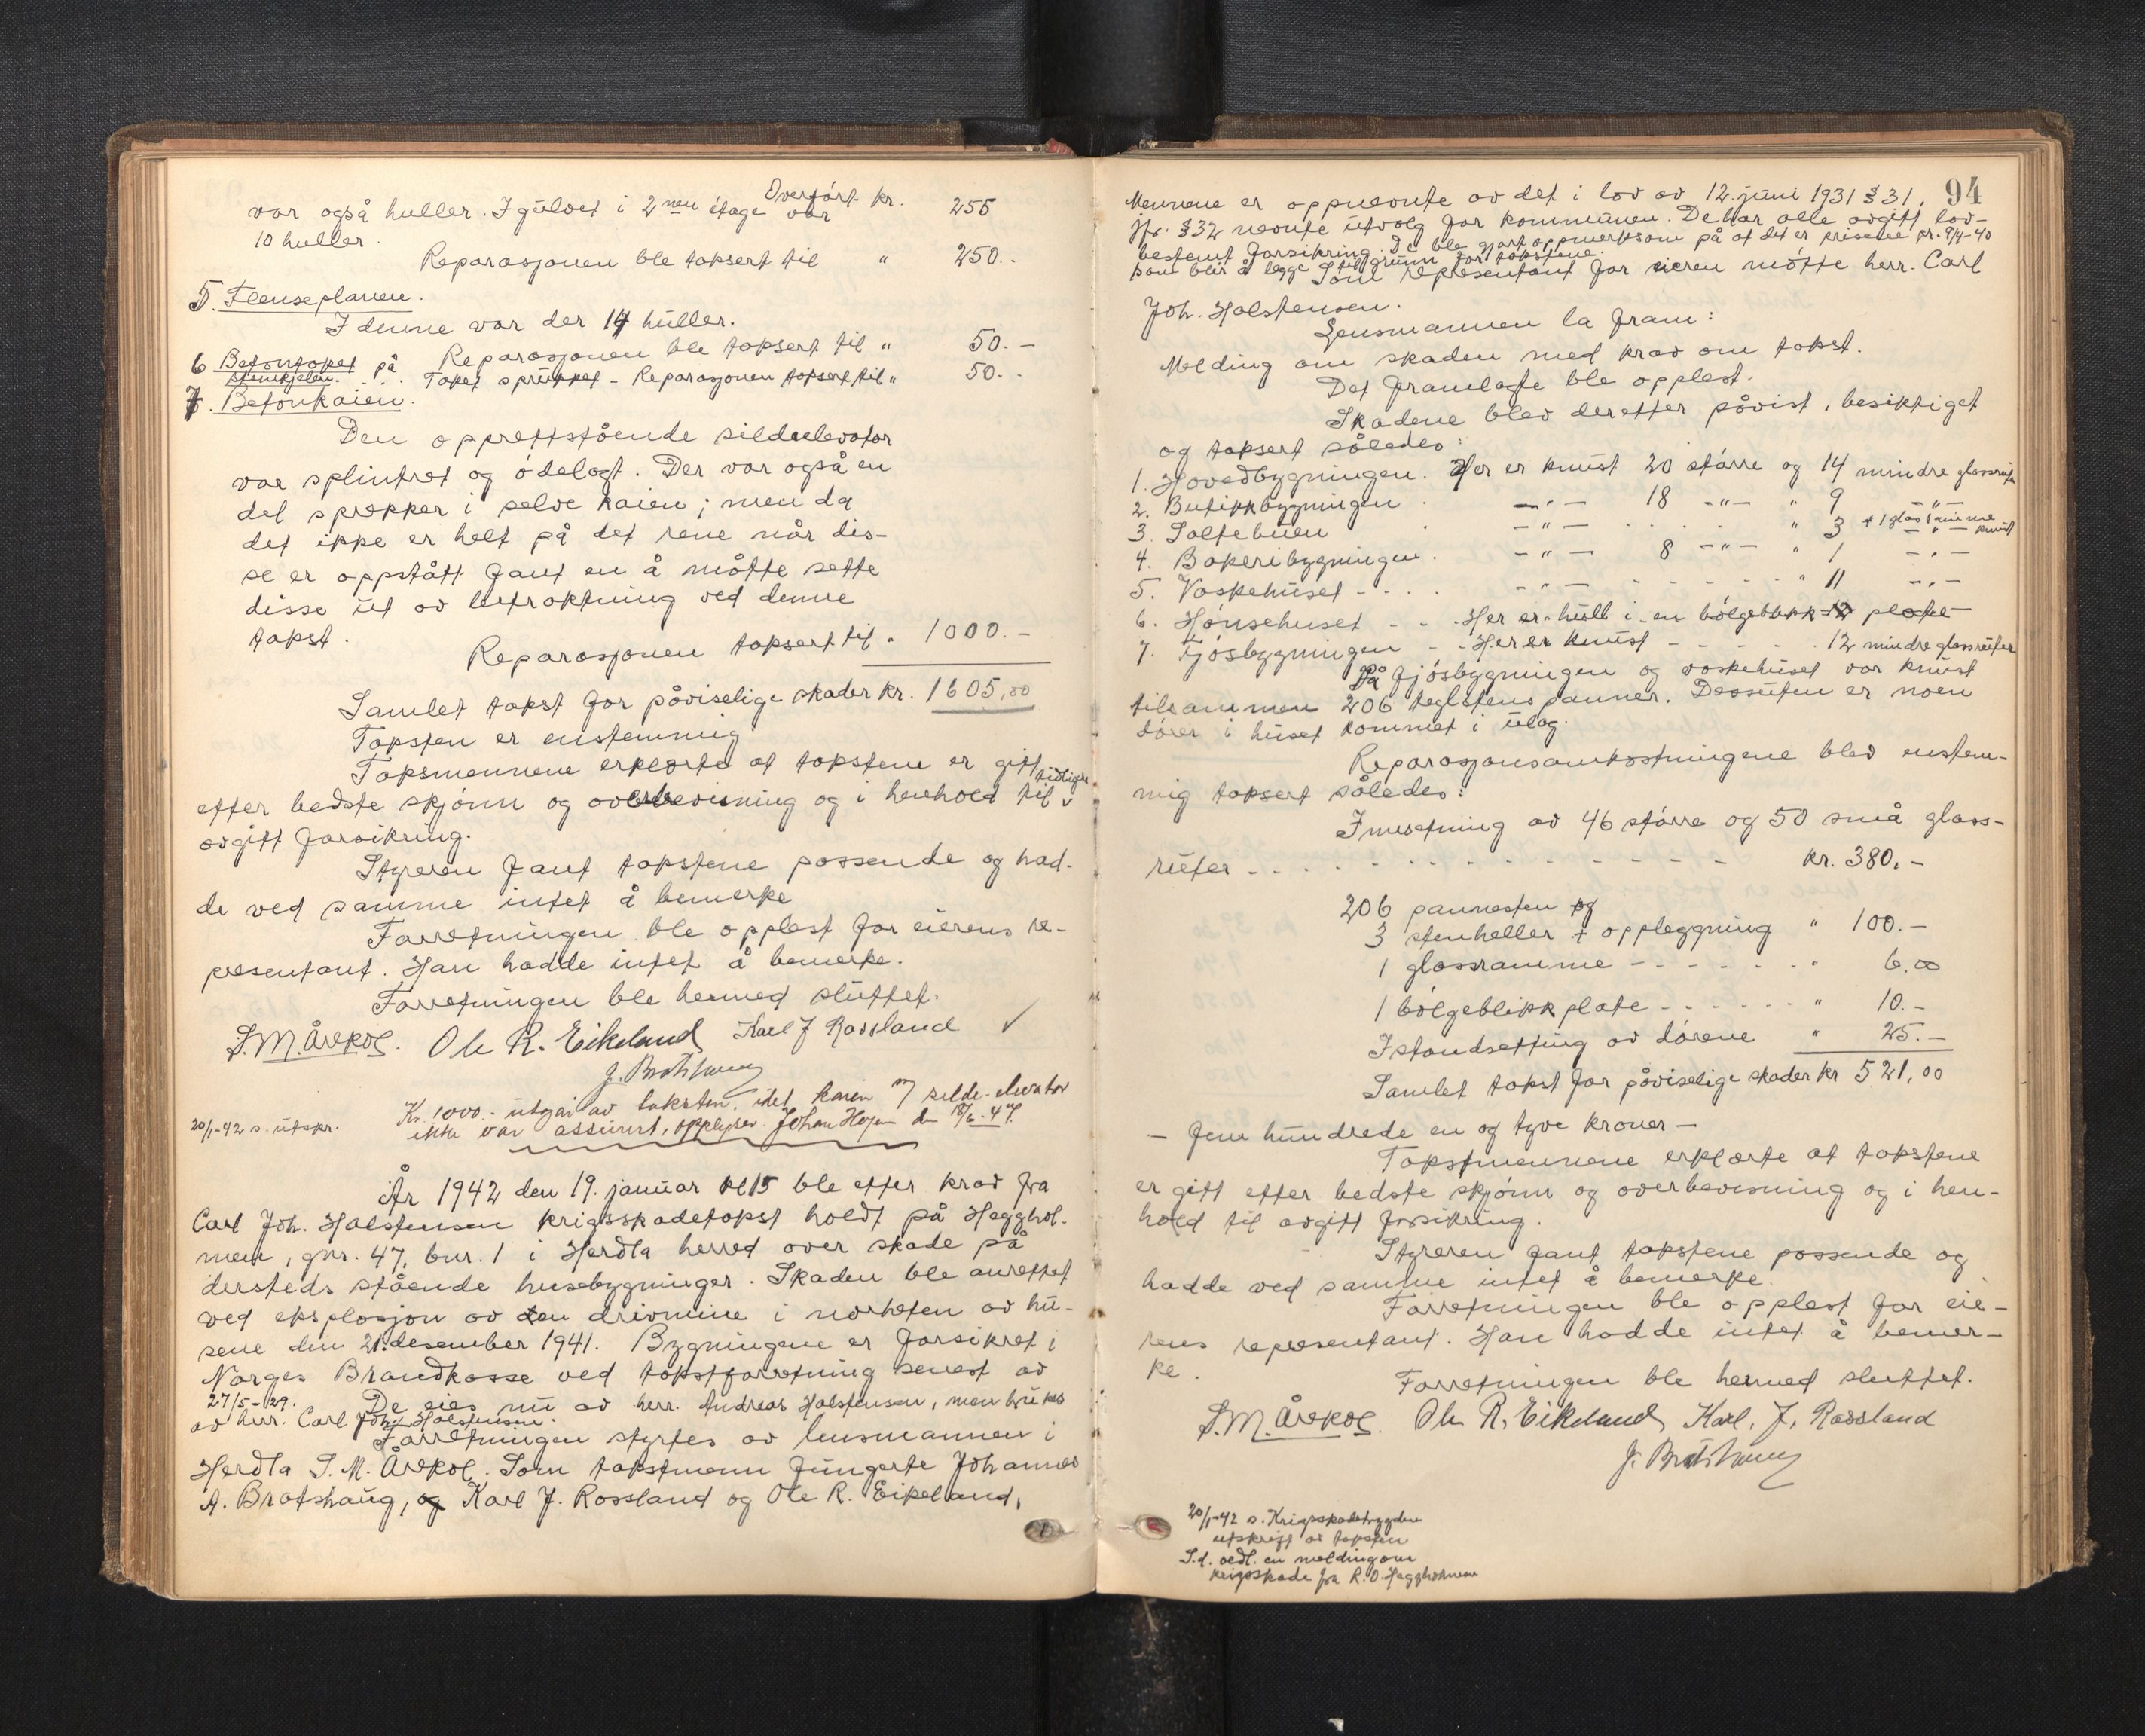 Overført kr. 255
var også huller. I gulvet i 2nen etage var
10 huller.
Reparasjonen ble taksert til " 250.-
5. Flenseplanen.
I denne var der 14 huller.
Reparasjonen ble taksert til " 50.-
6 Betontaket på
stenkjelen. Taket sprukket - Reparasjonen taksert til " 50.-
7. Betonkaien.
Den opprettstående sildeelevator
var splintret og ødelagt. Der var også en
del sprekker i selve kaien; men da
det ikke er helt på det rene når dis-
se er oppstått fant en å måtte sette
disse ut av betraktning ved denne
takst.
Reparasjonen taksert til " 1000.-
Samlet takst for påviselige skader kr. 1605,00
Taksten er enstemmig
Taksmennene erklærte at takstene er gitt
efter bedste skjønn og overbevisning og i henhold til tidligere
avgitt forsikring.
Styreren fant takstene passende og had-
de ved samme intet å bemerke
Forretningen ble opplest for eierens re-
presentant. Han hadde intet å bemerke.
Forretningen ble hermed sluttet.
S.M. Årskog. Ole R. Eikeland Karl J Rossland ✓
J. Bratshaug
Kr. 1000.- utgår av taksten, idet kaien m/ silde-elevator
ikke var assurert, opplyser Johan Hagen den 18/6-47.
20/1-42 s. utskr.
År 1942 den 19. januar kl 15 ble efter krav fra
Carl Joh. Halstensen krigsskadetakst holdt på Hegghol-
men, gnr. 47, bnr. 1 i Herdla herred over skade på
dersteds stående husebygninger. Skaden ble anrettet
ved eksplosjon av en drivmine i nærheten av hu-
sene den 21. desember 1941. Bygningene er forsikret i
Norges Brandkasse ved takstforretning senest av
27/5-29. De eies nu av herr. Andreas Halstensen, men brukes
av herr. Carl Joh. Halstensen.
Forretningen styrtes av lensmannen i
Herdla S. M. Årskog. Som takstmenn fungerte Johannes
A. Bratshaug, og Karl J. Rossland og Ole R. Eikeland,
94
Mennene er oppnevnte av det i lov av 12. juni 1931 § 31,
jfr. § 32 nevnte utvalg for kommunen. De har alle avgitt lov-
bestemt forsikring. De ble gjort oppmerksom på at det er prisene pr. 9/4-40
som blir å legge til grunn for takstene.
Som representant for eieren møtte herr. Carl
Joh. Halstensen.
Lensmannen la fram:
Melding om skaden med krav om takst.
Det framlagte ble opplest.
Skadene blev deretter påvist, besiktiget
og taksert således:
1. Hovedbygningen. Her er knust 20 større og 14 mindre glassruter
2. Butikkbygningen - " - 18 - " - " 9 - " -
3. Saltebuen - " - " 3 - " - + 1 glassramme knust
4. Bakeribygningen. - " - 8 - " - " 1 - " -
5. Vaskehuset - " - " 11 - " -
6. Hønsehuset - - Her er hull i en bølgeblikk plate
7. Fjøsbygningen - - Her er knust - - 12 mindre glassruter
På fjøsbygningen og vaskehuset var knust
tilsammen 206 teglstens panner. Dessuten er noen
dører i huset kommet i ulag.
Reparasjonsomkostningene blev enstem-
mig taksert således:
Innsetning av 46 større og 50 små glass-
ruter - - - kr. 380.-
206 pannesten og
3 stenheller + oppleggning " 100.-
1 glassramme - - - 6.00
1 bølgeblikk plate - - - " 10.-
Istandsetting av dørene " 25.-
Samlet takst for påviselige skader kr 521,00
- fem hundrede en og tyve kroner -
Takstmennene erklærte at takstene
er gitt efter bedste skjønn og overbevisning og i hen-
hold til avgitt forsikring.
Styreren fant takstene passende og
hadde ved samme intet å bemerke.
Forretningen ble opplest for eie-
rens representant. Han hadde intet å bemer-
ke.
Forretningen ble hermed sluttet.
S.M. Årskog. Ole R. Eikeland Karl. J. Rossland
J. Bratshaug
20/1-42 s. Krigsskadetrygden
utskrift av taksten
S.d. vedl. en melding om
krigsskade fra R.O. Heggholmen